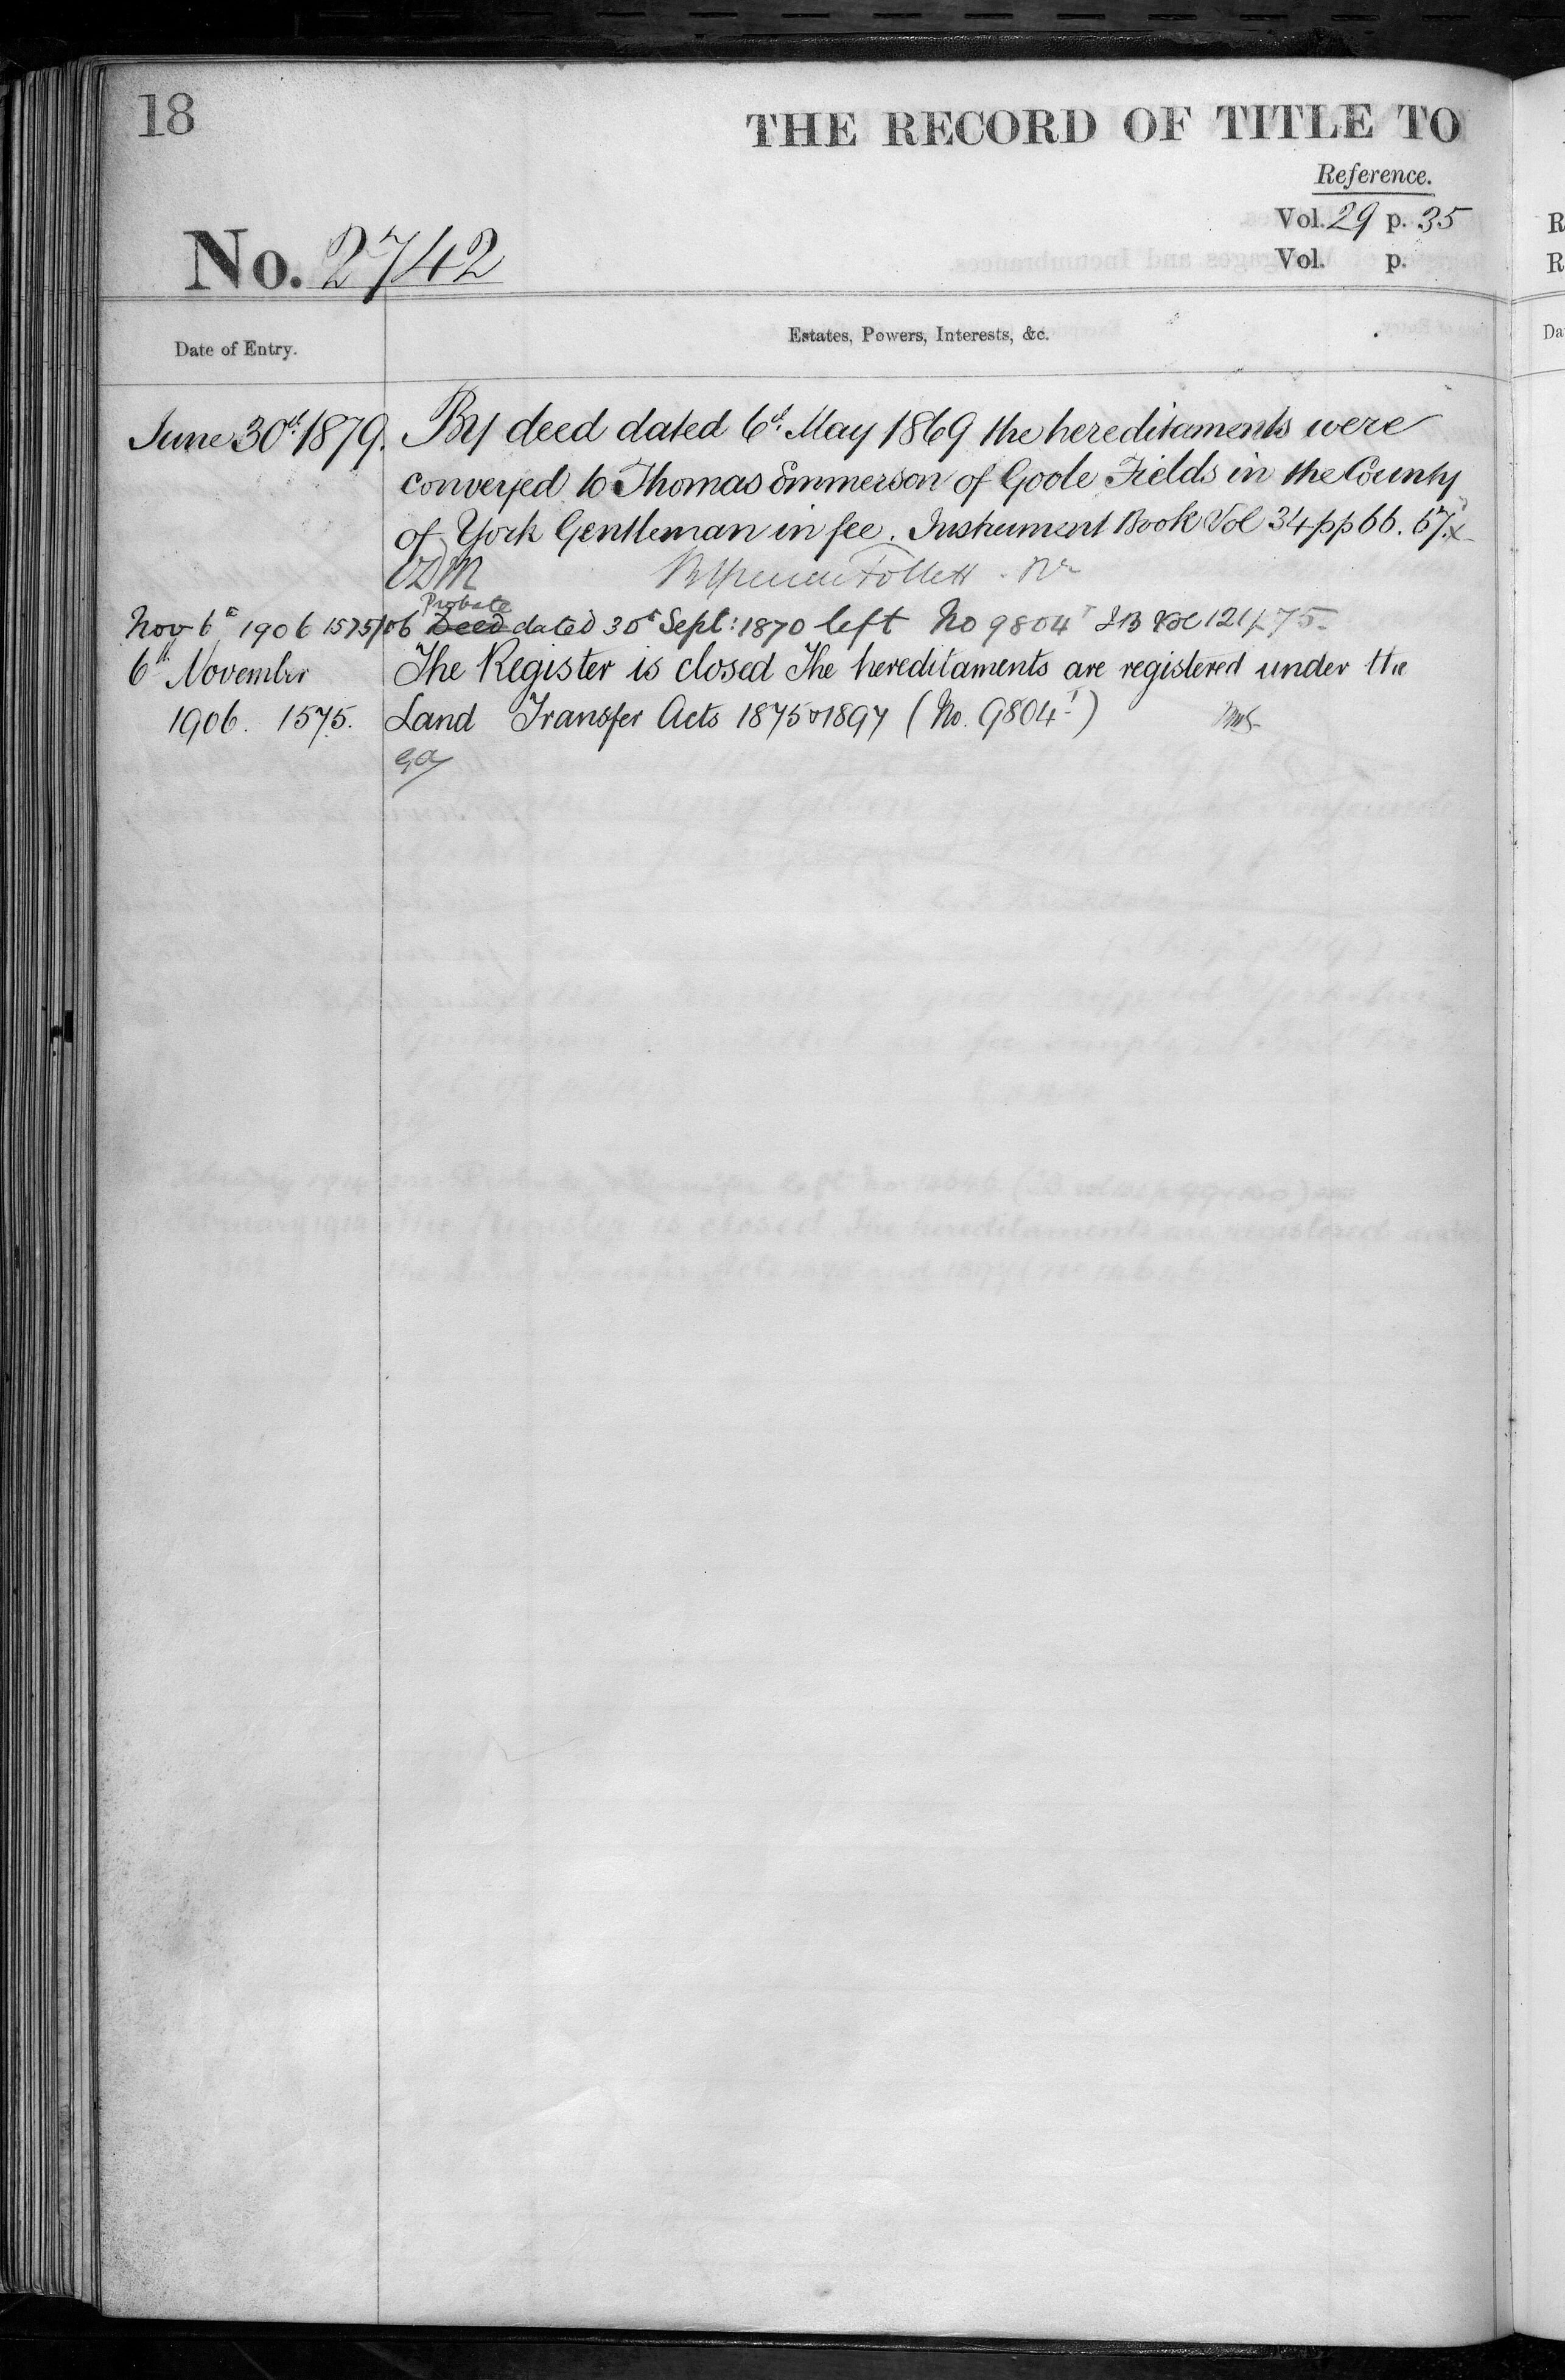 18
THE RECORD OF TITLE TO
Reference.
Vol. 29 p. 35
No. 2742
Vol. p.
Date of Entry.
Estates, Powers, Interests, &c.
June 30th 1879. By deed dated 6th May 1869 the hereditaments were
conveyed to Thomas Emmerson of Goole Fields in the County
of York Gentleman in fee. Instrument Book Vol 34 pp 66. 67.
Follett
Probate
Nov 6th 1906 1575/06 Deed dated 30th Sept: 1870 left No 9804 IB Vol 121 p 75
6th November The Register is closed The hereditaments are registered under the
1906. 1575. Land Transfer Acts 1875 & 1897 (No. 9804)